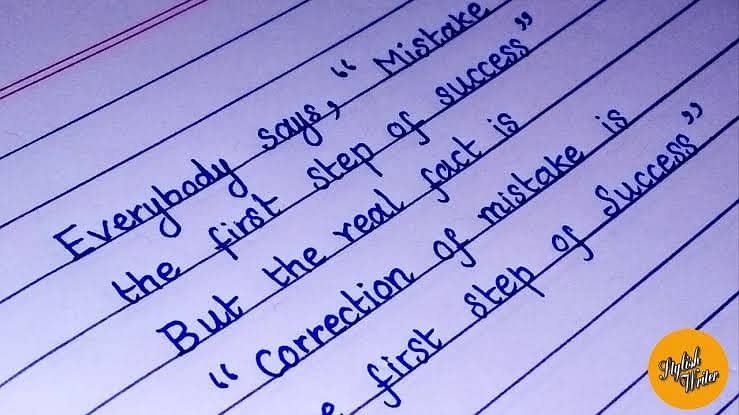 Everybody says, “ Mistake
the first step of success”
But the real fact is
“ Correction of mistake is
first step of Success”
Stylish
Writer